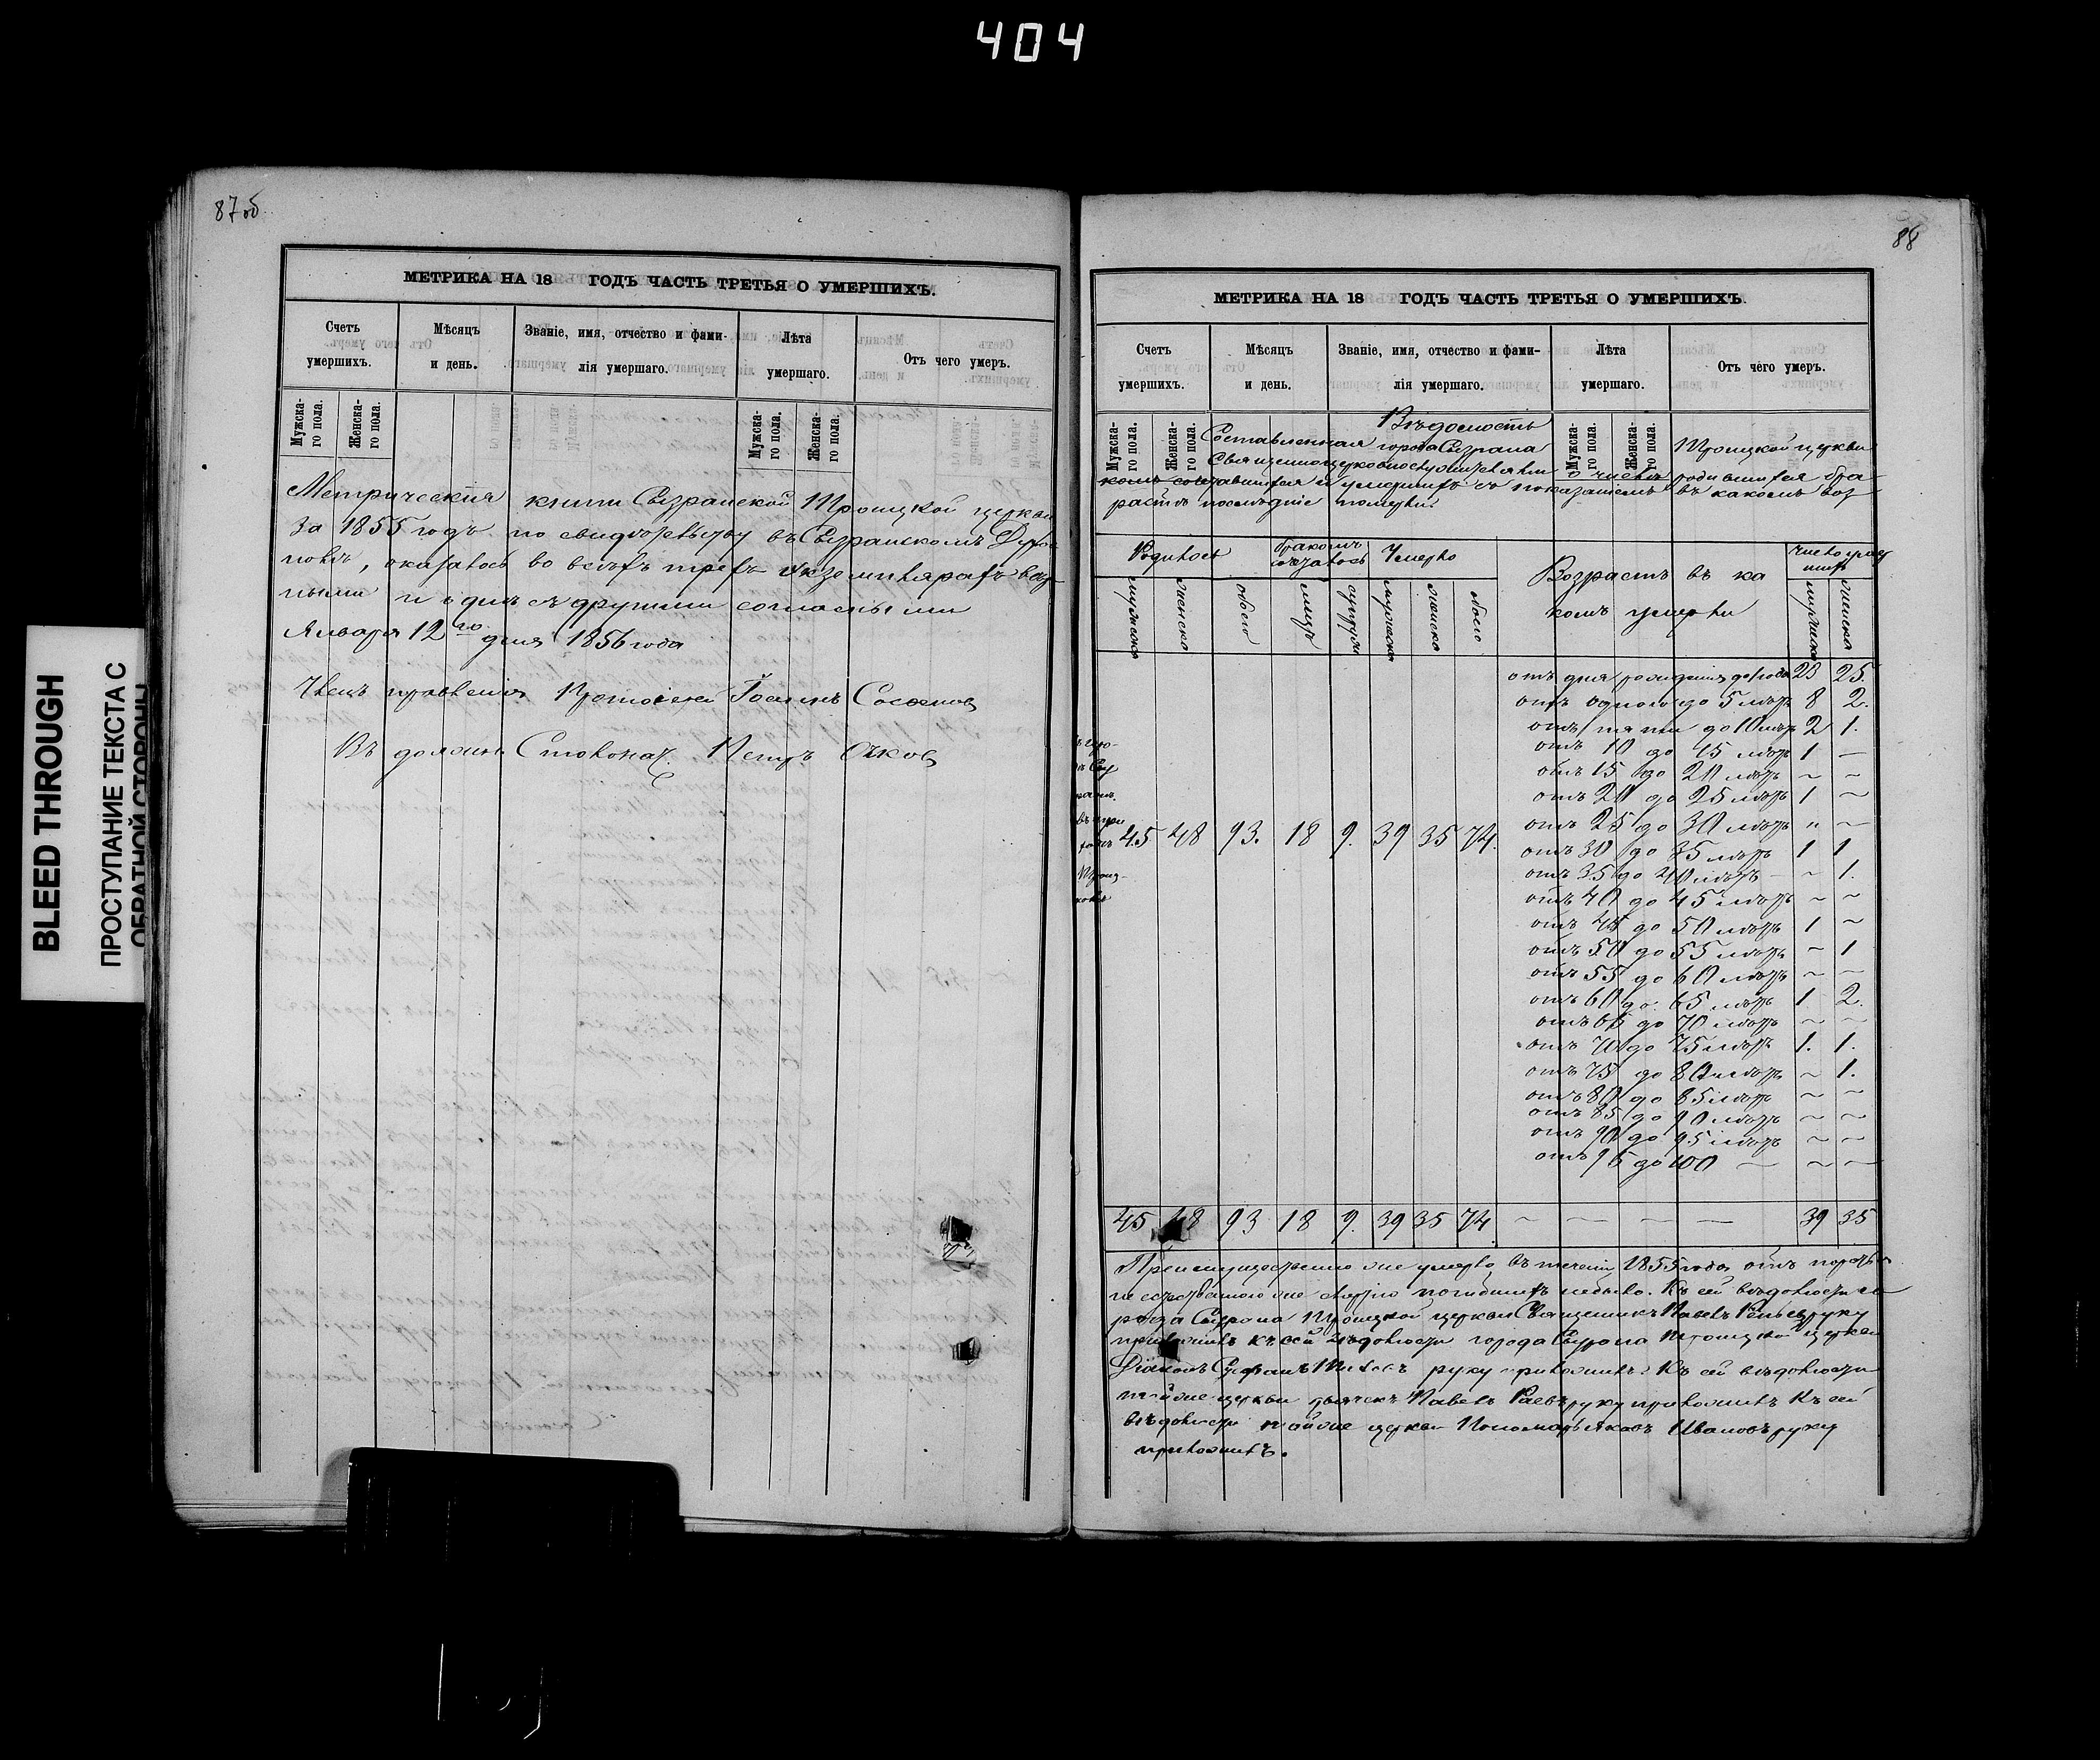 404
BLEED THROUGH
ПРОСТУПАНИЕ ТЕКСТА С
ОБРАТНОЙ СТОРОНЫ
87об
МЕТРИКА НА 18 ГОДЪ ЧАСТЬ ТРЕТЬЯ О УМЕРШИХЪ.
Счетъ умершихъ.
Мѣсяцъ и день.
Званіе, имя, отчество и фами-
лія умершаго.
Лѣта умершаго.
Отъ чего умеръ.
Мужска-
го пола.
Женска-
го пола.
Мужска-
го пола.
Женска-
го пола.
Метрическия книги Сызранской Троицкой церкви
за 1855 годъ по свидѣтельству въ Сызранскомъ Духов
номъ, оказалось во всѣхъ трехъ экземплярахъ вѣр
ными и одинъ съ другими согласными
Января 12го дня 1856 года
Членъ правленія Протоіерей Іоаннъ
Въ должн. Столонач. Петръ
88
МЕТРИКА НА 18 ГОДЪ ЧАСТЬ ТРЕТЬЯ О УМЕРШИХЪ.
Счетъ умершихъ.
Мѣсяцъ и день.
Званіе, имя, отчество и фами-
лія умершаго.
Лѣта умершаго.
Отъ чего умеръ.
Мужска-
го пола.
Женска-
го пола.
Мужска-
го пола.
Женска-
го пола.
Вѣдомость
Составленная города Сызрана Троицкой церкви
Священноцерковнослужителями о числѣ родившихся бра-
комъ сочетавшихся и умершихъ съ показаніемъ въ какомъ воз
растѣ послѣдніе померли.
Родилось
бракомъ
сочеталось
Умерло
Возрастъ въ ка
комъ умерли
число умер
шихъ
мужеска
женска
обоего
лицъ
супруж
мужеска
женска
обоего
мужеска
женска
отъ дня рожденія до года 23 25.
отъ одного до 5 лѣтъ 8 2.
отъ пяти до 10 лѣтъ 2 1.
отъ 10 до 15 лѣтъ 1 —
отъ 15 до 20 лѣтъ ~ ~
отъ 20 до 25 лѣтъ 1 ~
отъ 25 до 30 лѣтъ " ~
45 48 93. 18 9. 39 35 74.
отъ 30 до 35 лѣтъ 1 1
отъ 35 до 40 лѣтъ ~ 1.
отъ 40 до 45 лѣтъ ~ ~
отъ 45 до 50 лѣтъ 1 ~
отъ 50 до 55 лѣтъ ~ 1
отъ 55 до 60 лѣтъ ~ ~
отъ 60 до 65 лѣтъ 1 2.
отъ 65 до 70 лѣтъ ~ ~
отъ 70 до 75 лѣтъ 1. 1.
отъ 75 до 80 лѣтъ ~ 1.
отъ 80 до 85 лѣтъ ~ ~
отъ 85 до 90 лѣтъ ~ ~
отъ 90 до 95 лѣтъ ~ ~
отъ 95 до 100 — ~ ~
45 48 93 18 9. 39 35 74 ~ — — — 39 35
Преимущественно же умерло въ теченіи 1855 года отъ
же смертію погибшихъ небыло. Къ сей вѣдомости го
рода Сызрана Троицкой церкви Священникъ Павелъ руку
приложилъ къ сей вѣдомости города Сызрана Троицкой церкви
Діаконъ Стефанъ руку приложилъ. Къ сей вѣдомости
той же церкви дьячекъ Павелъ Раевъ руку приложилъ Къ сей
вѣдомости той же церкви Пономарь Яковъ Ивановъ руку
приложилъ.